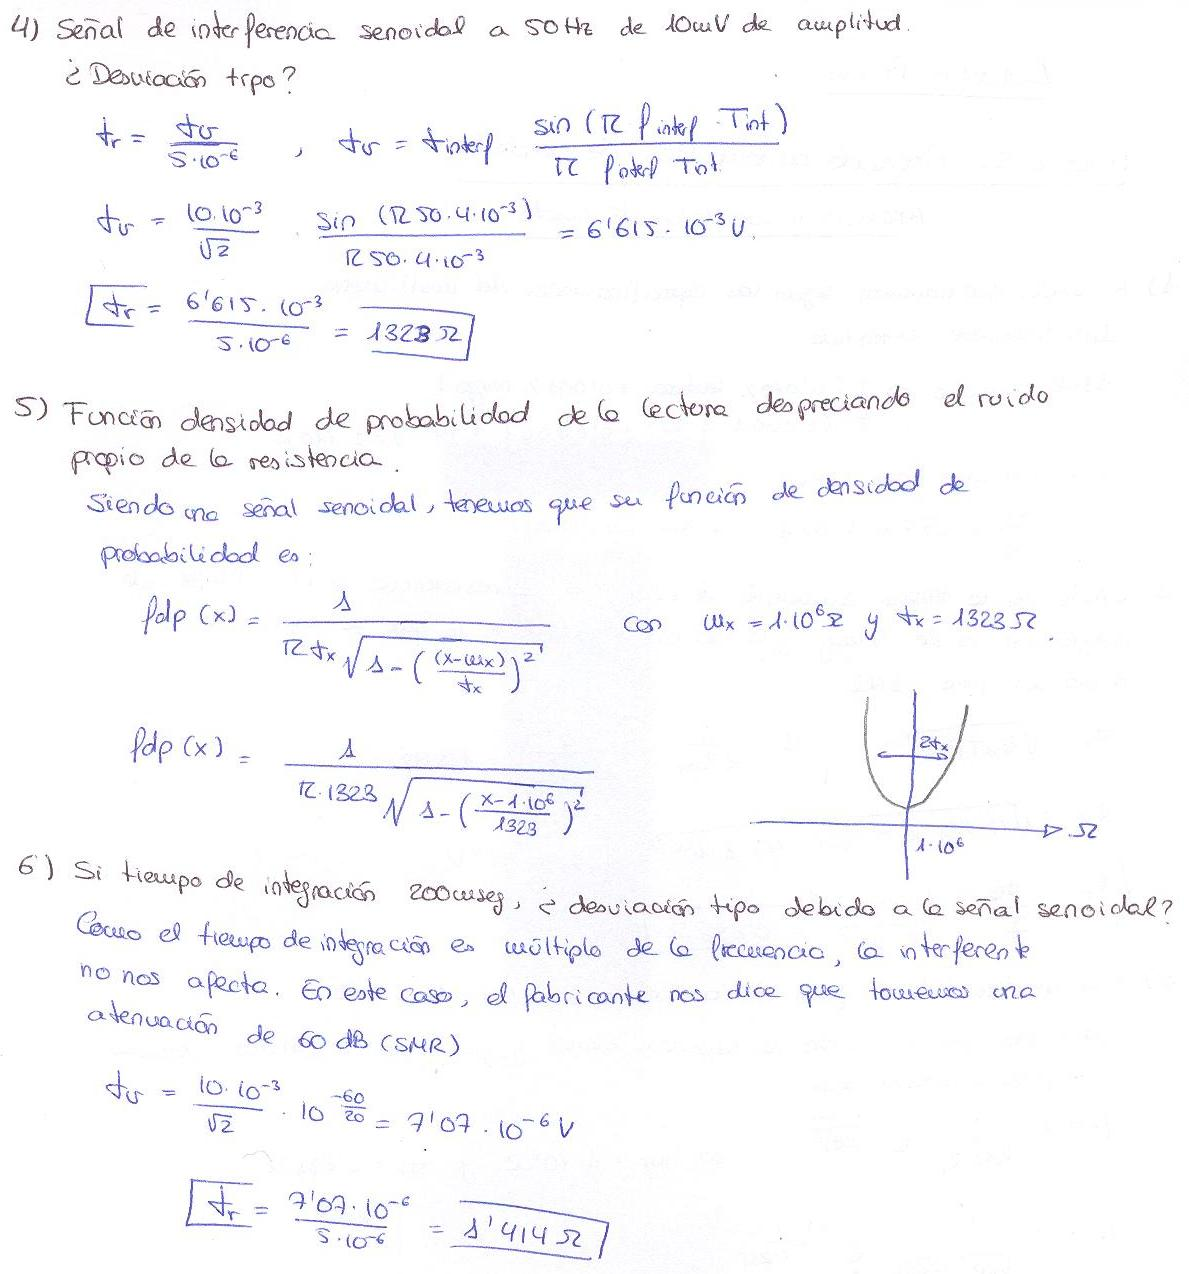 4) Señal de interferencia senoidal a 50Hz de 10mV de amplitud.
¿Desviación tipo?
σr = σv / 5·10⁻⁶ , σv = σinterf · sin(π finterf · Tint) / π finterf Tint
σv = 10·10⁻³ / √2 · sin(π 50·4·10⁻³) / π 50·4·10⁻³ = 6'615·10⁻³ V.
σr = 6'615·10⁻³ / 5·10⁻⁶ = 1323 Ω
5) Función densidad de probabilidad de la lectura despreciando el ruido
propio de la resistencia.
Siendo una señal senoidal, tenemos que su función de densidad de
probabilidad es:
fdp (x) = 1 / π σx √(1 - ((x-mx) / σx)²) con mx = 1·10⁶ Ω y σx = 1323 Ω.
fdp (x) = 1 / π·1323 √(1 - (x-1·10⁶ / 1323)²)
2σx
Ω
1·10⁶
6) Si tiempo de integración 200mseg, ¿desviación tipo debido a la señal senoidal?
Como el tiempo de integración es múltiplo de la frecuencia, la interferente
no nos afecta. En este caso, el fabricante nos dice que tomemos una
atenuación de 60 dB (SMR)
σv = 10·10⁻³ / √2 · 10^(-60/20) = 7'07·10⁻⁶ V
σr = 7'07·10⁻⁶ / 5·10⁻⁶ = 1'414 Ω